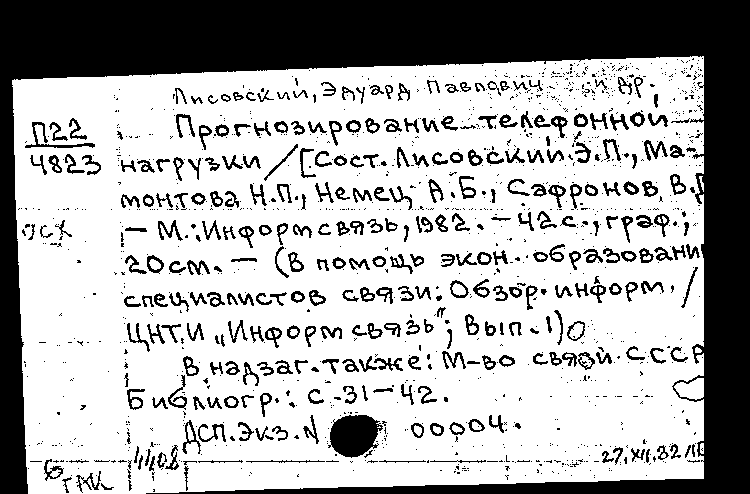 Лисовский, Эдуард Павлович и др.
П22
4823
Прогнозирование телефонной
нагрузки / [Сост. Лисовский Э.П., Ма-
монтова Н.П., Немец А.Б., Сафронов В.
– М.: Информсвязь, 1982. – 42 с., граф.;
20 см. – (В помощь экон. образовани
специалистов связи: Обзор. информ. /
ЦНТИ „Информсвязь"; Вып. 1)
В надзаг. также: М-во связи СССР
Библиогр.: с. 31–42.
ДСП. Экз. N 00004.
4408
27.XII.82